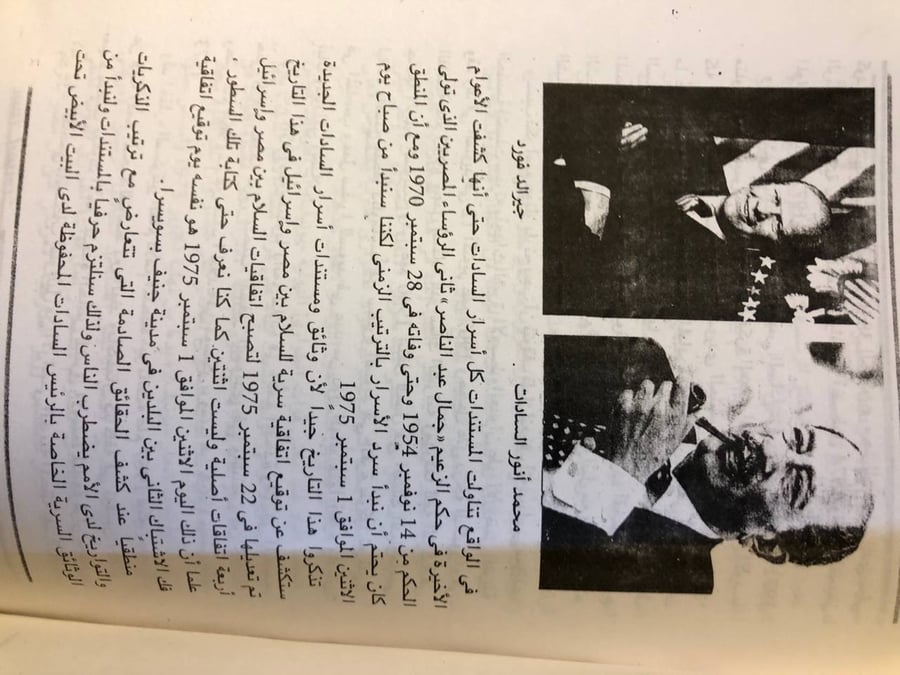 جيرالد فورد
محمد أنور السادات
فى الواقع تناولت المستندات كل أسرار السادات حتى أنها كشفت الأعوام
الأخيرة فى حكم الزعيم «جمال عبد الناصر» ثانى الرؤساء المصريين الذى تولى
الحكم من 14 نوفمبر 1954 وحتى وفاته فى 28 سبتمبر 1970 ومع أن المنطق
كان يحتم أن نبدأ سرد الأسرار بالترتيب الزمنى لكننا سنبدأ من صباح يوم
الاثنين الموافق 1 سبتمبر 1975
تذكروا هذا التاريخ جيداً لأن وثائق ومستندات أسرار السادات الجديدة
ستكشف عن توقيع اتفاقية سرية للسلام بين مصر وإسرائيل فى هذا التاريخ
تم تعديلها فى 22 سبتمبر 1975 لتصبح اتفاقيات السلام بين مصر وإسرائيل
أربعة اتفاقات أصلية وليست اثنتين كما كنا نعرف حتى كتابة تلك السطور ،
علما أن ذلك اليوم الاثنين الموافق 1 سبتمبر 1975 هو نفسه يوم توقيع اتفاقية
فك الاشتباك الثانى بين البلدين فى مدينة جنيف بسويسرا.
منطقيا عند كشف الحقائق الصادمة التى تتعارض مع ترتيب الذكريات
والتواريخ لدى الأمم يضطرب الناس ولذلك سنلتزم حرفيا بالمستندات ولنبدأ من
الوثائق السرية الخاصة بالرئيس السادات المحفوظة لدى البيت الأبيض تحت